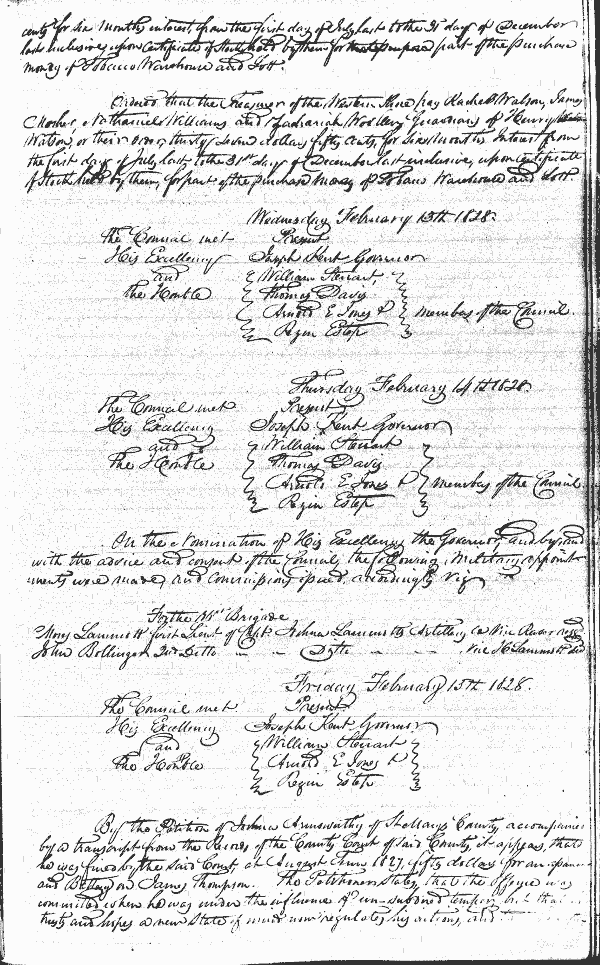 cents for six months interest, from the first day of July last to the 31st day of December
last inclusive, upon certificate of Stock held by them for part of the purchase
money of Tobacco Warehouse and Lott.
Ordered that the Treasurer of the Western Shore pay Rachel Watson, James
Mosher, Nathaniel Williams and Zachariah Woollen, Guardians of Henry
Watson, or their order, thirty seven dollars fifty cents, for six months Interest from
the first day of July last, to the 31st day of December last inclusive, upon certificate
of Stock held by them, for part of the purchase money of Tobacco Warehouse and Lott
Wednesday February 13th 1828.
The Council met Present
His Excellency Joseph Kent Governor
and William Stewart,
the Honble Thomas Davis
Arnold E Jones & members of the Council.
Rezin Estep
Thursday February 14th 1828.
The Council met Present
His Excellency Joseph Kent Governor
and William Stewart
the Honble Thomas Davis
Arnold E Jones & members of the Council
Rezin Estep
On the Nomination of His Excellency the Governor, and by and
with the advice and consent of the Council, the following Military appoint
ments were made, and Commissions issued, accordingly Viz
For the Brigade
Lammott first Lieut of Capt Joshua Lammotts Artillery Co Vice
John Bollinger 2nd Ditto - - Ditto - - - Vice Lammott
Friday February 15th 1828.
The Council met Present
His Excellency Joseph Kent Governor
and William Stewart
the Honble Arnold E Jones &
Rezin Estep
By the Petition of Joshua of St Marys County, accompanied
by a transcript from the Records of the County Court of said County, it appears, that
he was fined by the said Court, at August Term 1827, fifty dollars for an
and Battery on James Thompson. The Petitioner States, that the offence was
committed when he was under the influence of un-subdued temper, but that
trusts and hopes a new State of mind now regulates his actions, and